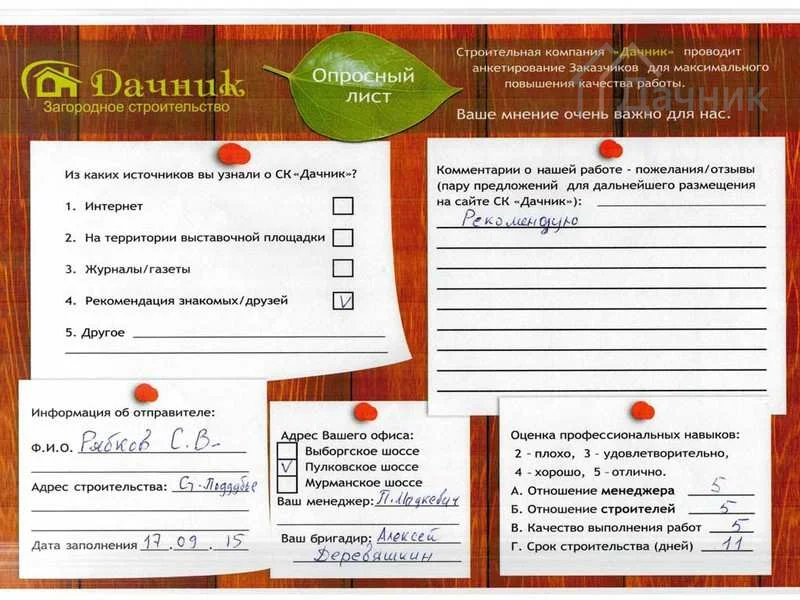 Дачник
Загородное строительство
Опросный
лист
Строительная компания «Дачник» проводит
анкетирование Заказчиков для максимального
повышения качества работы.
Ваше мнение очень важно для нас.
Дачник
Из каких источников вы узнали о СК «Дачник»?
1. Интернет
2. На территории выставочной площадки
3. Журналы/газеты
4. Рекомендация знакомых/друзей V
5. Другое
Комментарии о нашей работе - пожелания/отзывы
(пару предложений для дальнейшего размещения
на сайте СК «Дачник»):
Рекомендую
Информация об отправителе:
Ф.И.О. Рябков С.В.
Адрес строительства: Ст-Поддубье
Дата заполнения 17.09.15
Адрес Вашего офиса:
Выборгское шоссе
V Пулковское шоссе
Мурманское шоссе
Ваш менеджер: П. Мацкевич
Ваш бригадир: Алексей
Деревяшкин
Оценка профессиональных навыков:
2 - плохо, 3 - удовлетворительно,
4 - хорошо, 5 - отлично.
А. Отношение менеджера 5
Б. Отношение строителей 5
В. Качество выполнения работ 5
Г. Срок строительства (дней) 11